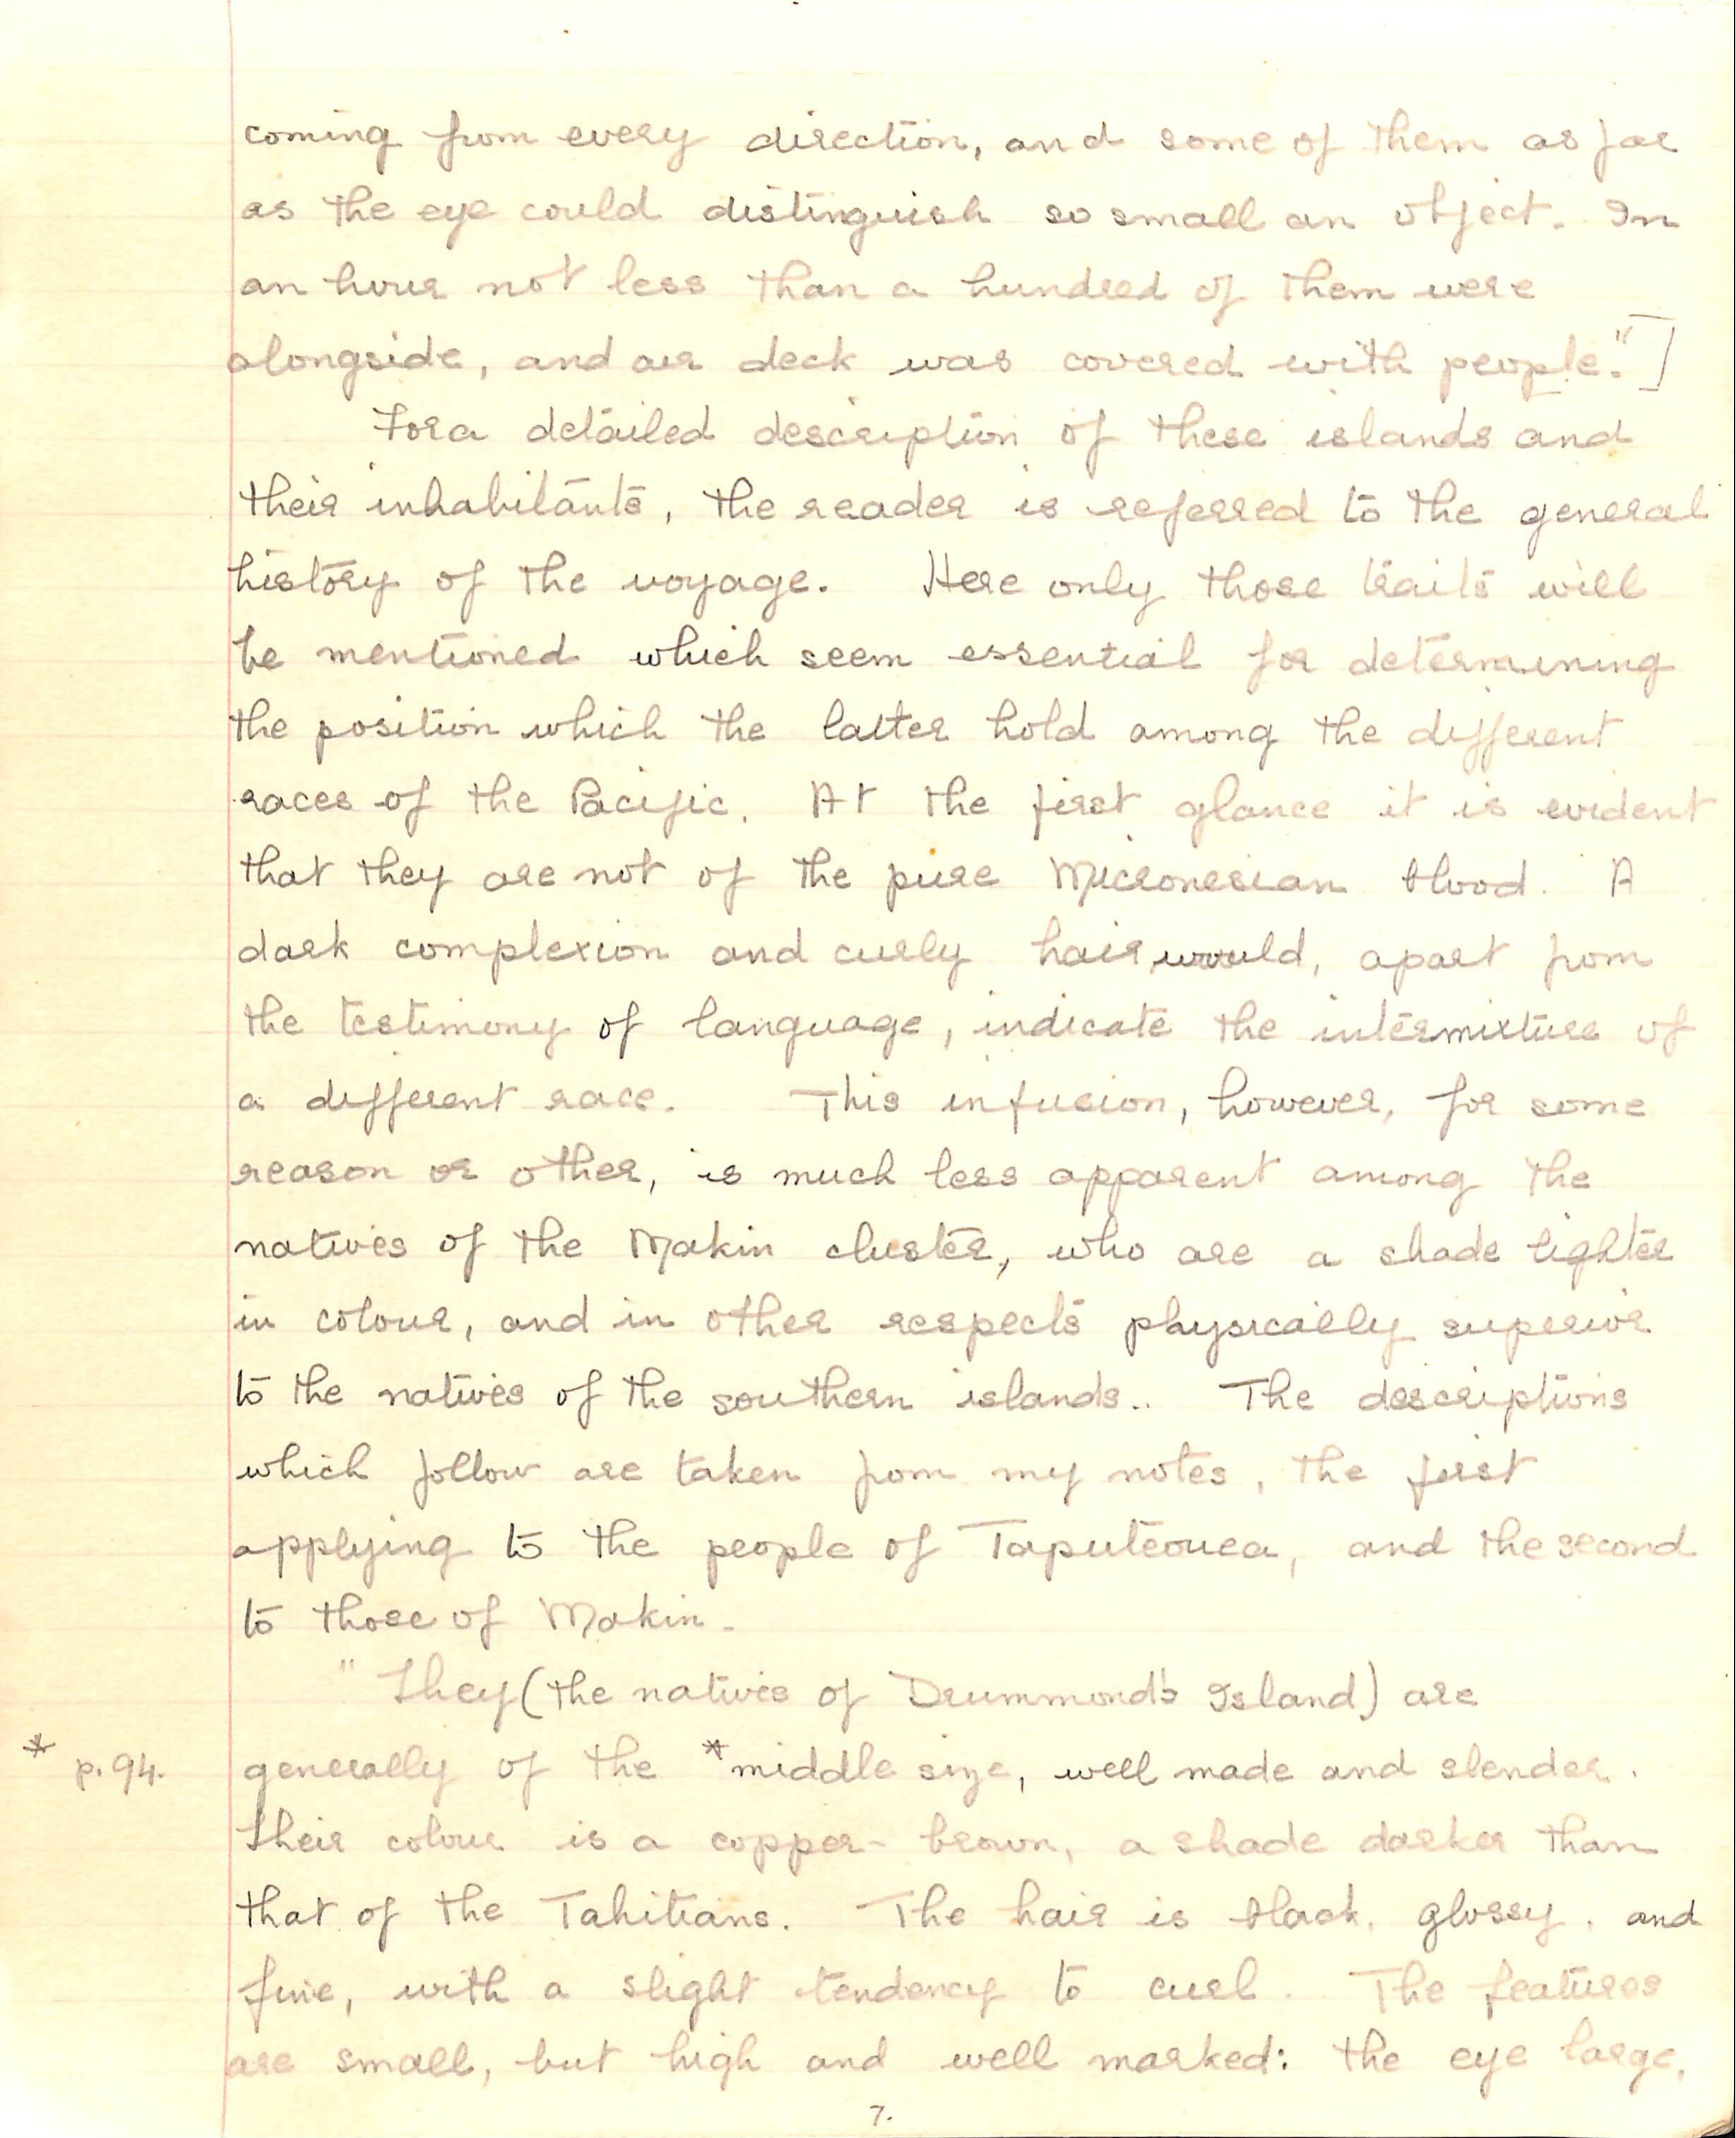 coming from every direction, and some of them as far
as the eye could distinguish so small an object. In
an hour not less than a hundred of them were
alongside, and our deck was covered with people."]
For a detailed description of these islands and
their inhabitants, the reader is referred to the general
history of the voyage. Here only those traits will
be mentioned which seem essential for determining
the position which the latter hold among the different
races of the Pacific. At the first glance it is evident
that they are not of the pure Micronesian blood. A
dark complexion and curly hair, would, apart from
the testimony of language, indicate the intermixture of
a different race. This infusion, however, for some
reason or other, is much less apparent among the
natives of the Makin cluster, who are a shade lighter
in colour, and in other respects physically superior
to the natives of the southern islands.. The descriptions
which follow are taken from my notes, the first
applying to the people of Taputeouea, and the second
to those of Makin.
"They (the natives of Drummond's Island) are
* p. 94. generally of the *middle size, well made and slender.
Their colour is a copper-brown, a shade darker than
that of the Tahitians. The hair is black, glossy, and
fine, with a slight tendency to curl. The features
are small, but high and well marked: the eye large,
7.